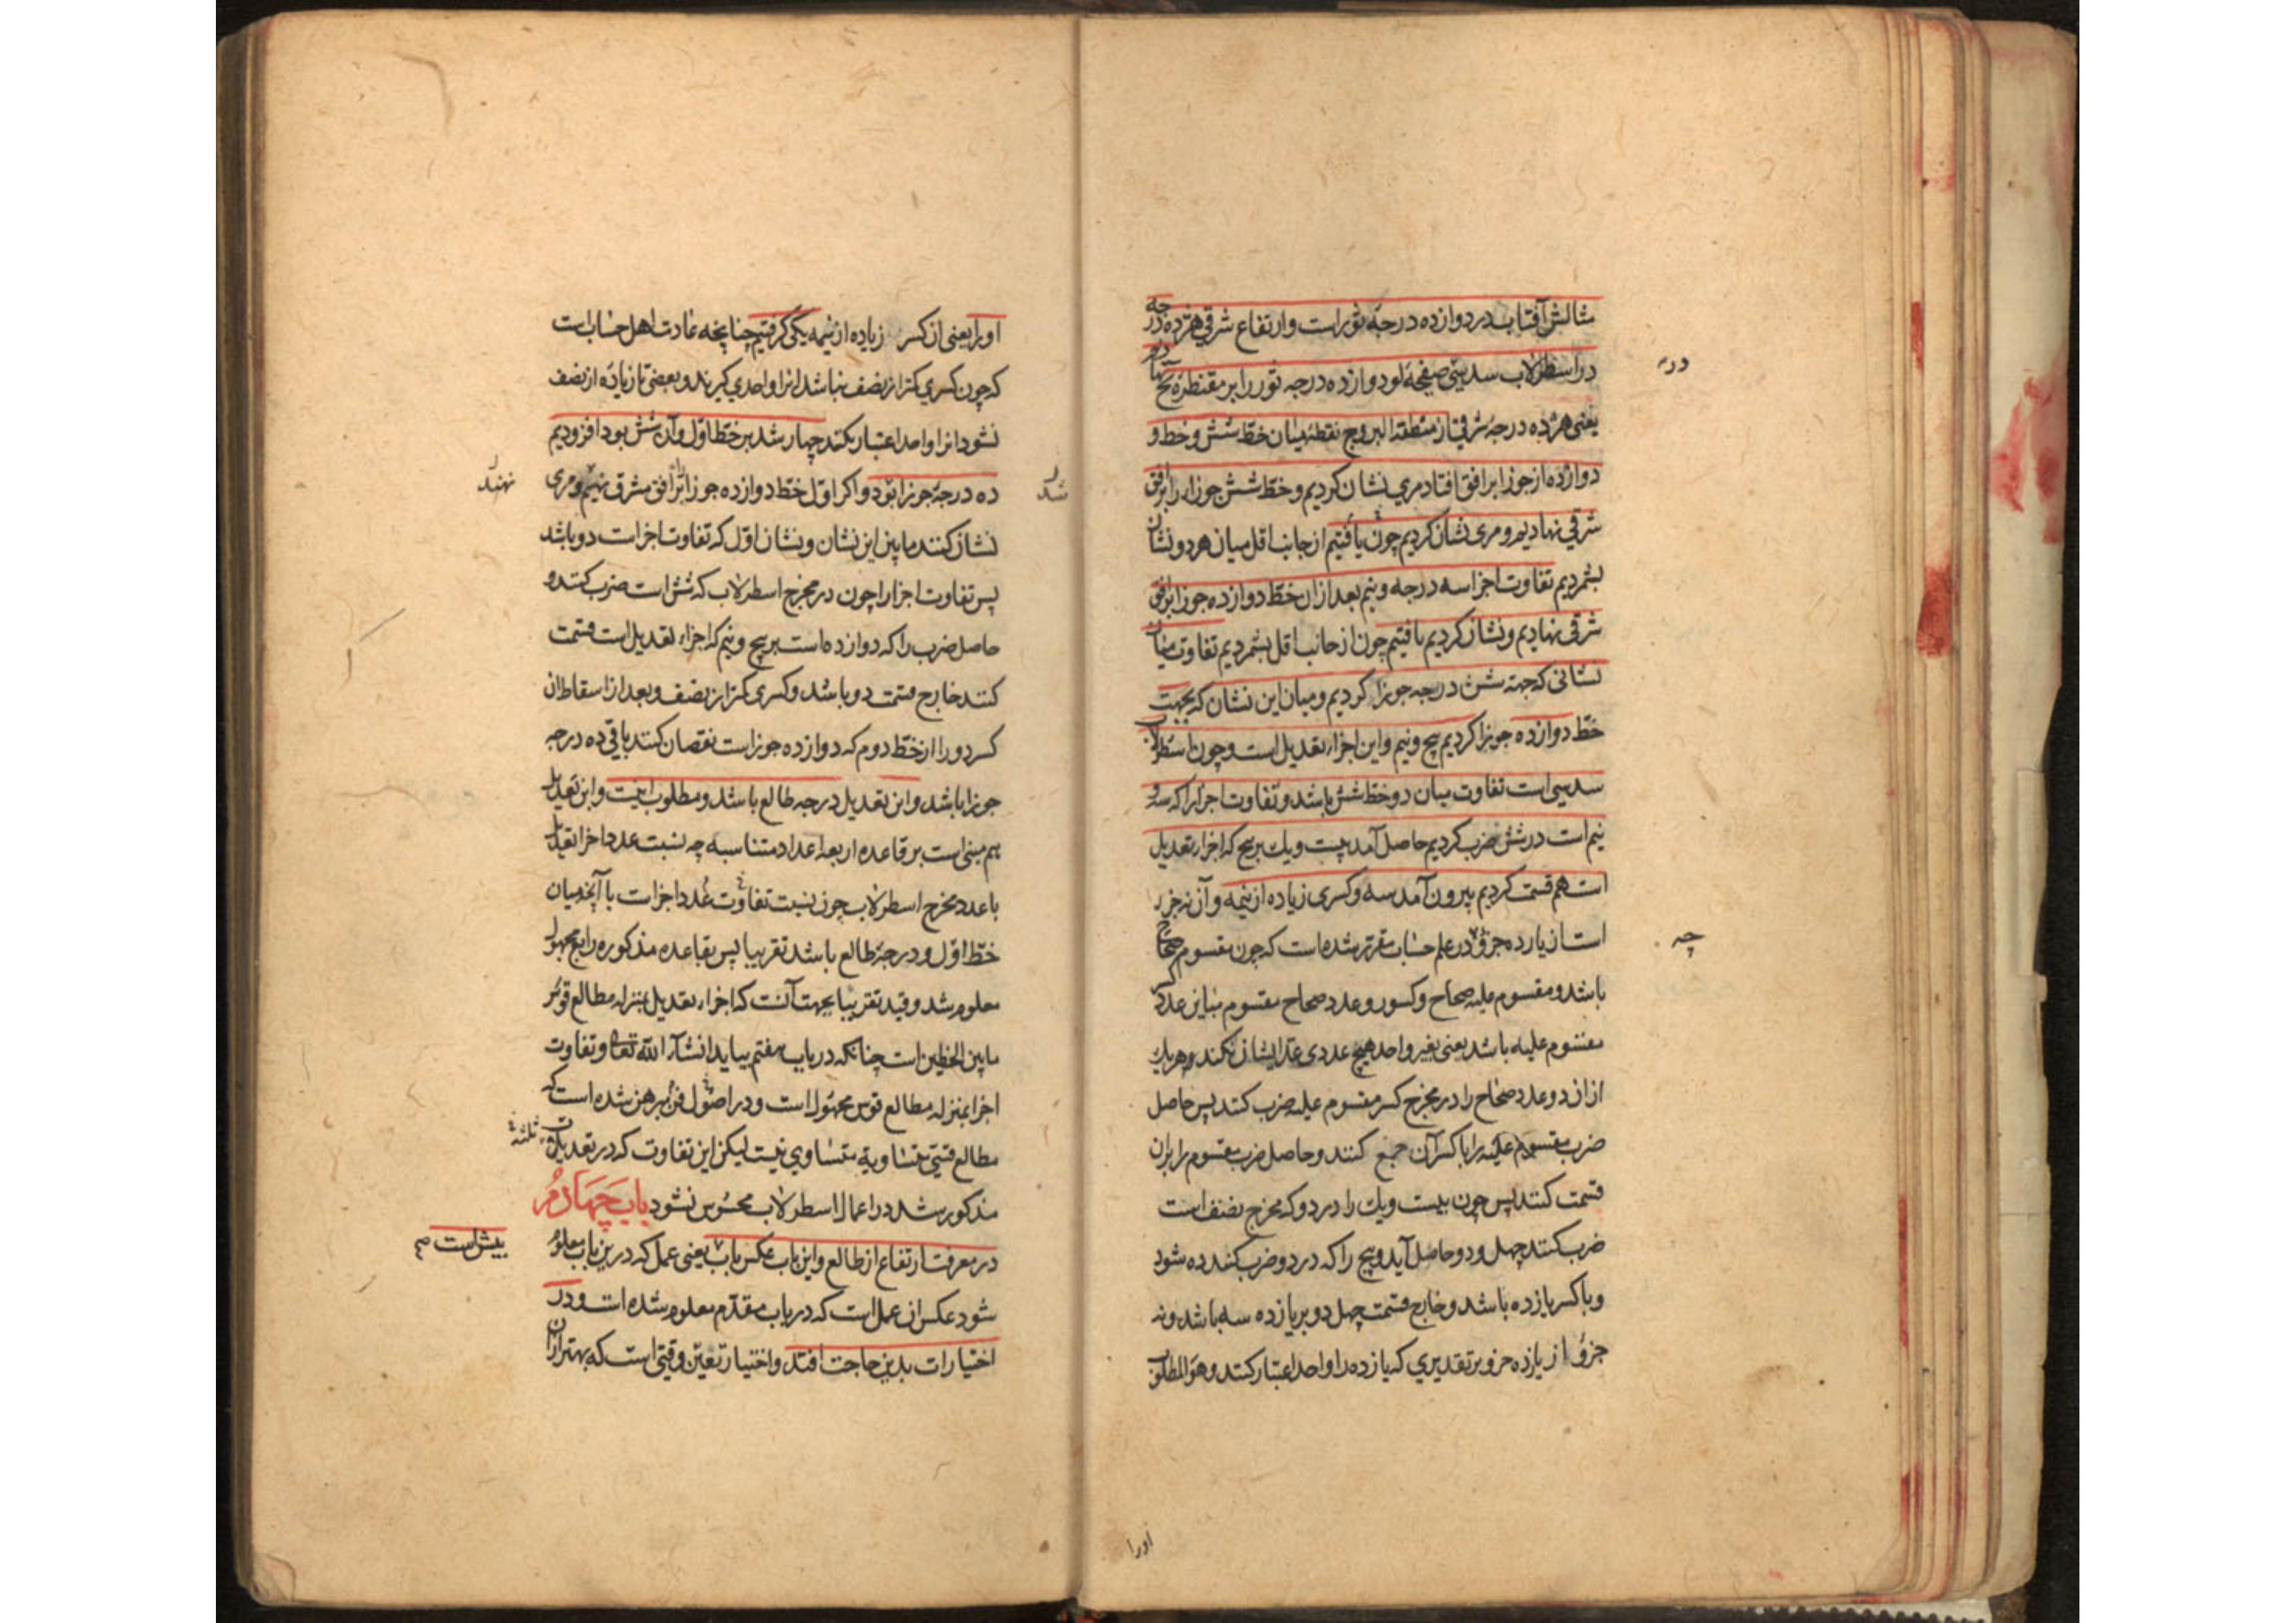 مثالش آفتاب در دوازده درجهٔ ثور است وارتفاع شرقی هژده درجه
در اسطرلاب سدسی صفیحهٔ لو دوازده درجه ثور را بر مقنطرهٔ یح نهادیم
یعنی هژده درجه شرقی از منطقة البروج نقطه میان خط شش و خط و
دوازده از جوزا بر افق افتاد مری نشان کردیم و خط شش جوزا را بر افق
شرقی نهادیم و مری نشان کردیم چون یافتیم از جانب اقل میان هر دو نشان
بشمردیم تفاوت اجزا سه درجه و نیم بعد از ان خط دوازده جوزا بر افق
شرقی نهادیم و نشان کردیم یافتیم چون از جانب اقل بشمردیم تفاوت میان
نشانی که جهة شش درجه جوزا کردیم و میان این نشان که بجهت
خط دوازده جوزا کردیم پنج و نیم و این اجزاء تعدیل است و چون اسطرلاب
سدسی است تفاوت میان دو خط شش باشد و تفاوت اجزا را که سه و
نیم است در شش ضرب کردیم حاصل آمد بیست و یک بر پنج که اجزاء تعدیل
است هم قسمت کردیم بیرون آمد سه و کسری زیاده از نیمه و آن نه جزء
است از یازده جزؤ در علم حساب مقرر شده است که چون مقسوم صحاح
باشد و مقسوم علیه صحاح و کسور و عدد صحاح مقسوم مباین عدد
مقسوم علیه باشد یعنی بغیر واحد هیچ عددی عد ایشان نکند و هر یک
از ان دو عدد صحاح را در مخرج کسر مقسوم علیه ضرب کنند پس حاصل
ضرب مقسوم علیه را با کسر آن جمع کنند و حاصل ضرب مقسوم را بران
قسمت کنند پس چون بیست و یک را در دو که مخرج نصف است
ضرب کنند چهل و دو حاصل آید و پنج را که در دو ضرب کنند ده شود
و با کسر یازده باشد و خارج قسمت چهل دو بر یازده سه باشد و نه
جزؤ از یازده جزو بر تقدیری که یازده را واحد اعتبار کنند و هو المطلوب
اورا
اورا یعنی از کسر زیاده از نیمه یکی گرفتیم چنانچه عادت اهل حساب است
که چون کسری کمتر از نصف نباشد انرا واحدی گیرند و بعضی تا زیاده از نصف
نشود انرا واحد اعتبار نکنند چهار شد بر خط اول و آن شش بود افزودیم
ده درجهٔ جوزا بود و اکر اول خط دوازده جوزا بر افق مشرق نهیم و مری
نهند
شد
نشان کنند ما بین این نشان و نشان اول که تفاوت اجزاست دو باشد
پس تفاوت اجزا را چون در مخرج اسطرلاب که شش است ضرب کنند و
حاصل ضرب را که دوازده است بر پنج و نیم که اجزاء تعدیل است قسمت
کنند خارج قسمت دو باشد و کسری کمتر از نصف و بعد از اسقاط ان
کسر دو را از خط دوم که دوازده جوزاست نقصان کنند باقی ده درجه
جوزا باشد و این تعدیل درجه طالع باشد و مطلوب اینست و این تعدیل
هم مبنی است بر قاعده اربعه اعداد متناسبه چه نسبت عدد اجزا تعدیل
با عدد مخرج اسطرلاب چون نسبت تفاوت عدد اجزاست با آنچه میان
خط اول و درجهٔ طالع باشد تقریبا پس بقاعده مذکوره رابع مجهول
معلوم شد و قید تقریبا بجهت آنست که اجزاء تعدیل بمنزله مطالع قوس
ما بین الخطین است چنانکه در باب هفتم بیاید انشاء الله تعالی و تفاوت
اجزا بمنزله مطالع قوس مجهول است و در اصول فن مبرهن شده است که
مطالع قسی متساویة متساوی نیست لیکن این تفاوت که در تعدیلات
ثلثه
مذکور شد در اعمال اسطرلاب محسوس نشود باب چهارم
در معرفت ارتفاع از طالع و این باب عکس باب یعنی عمل که درین باب معلوم
پیش است صح
شود عکس ان عمل است که در باب مقدم معلوم شده است و در
اختیارات بدین حاجت افتد و اختیار تعین وقتی است که بهتر از ان